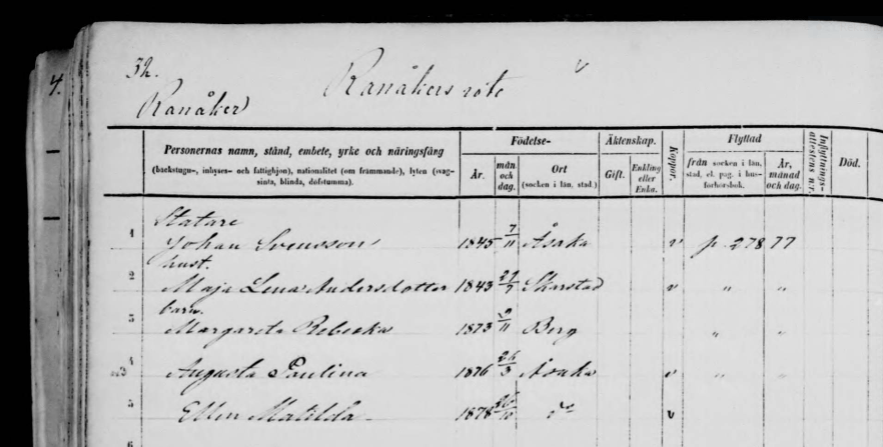 4.
32.
Ranåkers rote
v
Ranåker
Personernas namn, stånd, embete, yrke och näringsfång
(backstugu-, inhyses- och fattighjon), nationalitet (om främmande), lyten (svag-
sinta, blinda, döfstumma).
Födelse-
År.
mån. och dag.
Ort
(socken i län, stad.)
Äktenskap.
Gift.
Enkling eller Enka.
Koppor.
Flyttad
från socken i län, stad, el. pag. i hus-
förhörsbok.
År, månad och dag.
Inflyttnings-
attestens n:r.
Död.
Statare
1 Johan Svensson 1845 7/11 Åsaka v p. 278 77
hust.
2 Maja Lena Andersdotter 1843 27/7 Skarstad v " "
barn.
3 Margareta Rebecka 1873 9/11 Berg " "
4 Augusta Paulina 1876 26/3 Åsaka v " "
5 Ellen Matilda 1878 v
6